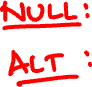 NULL:
ALT: